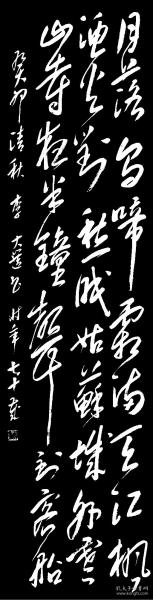 月落乌啼霜满天江枫
渔火对愁眠姑苏城外寒
山寺夜半钟声到客船
癸卯清秋李大运书时年七十岁